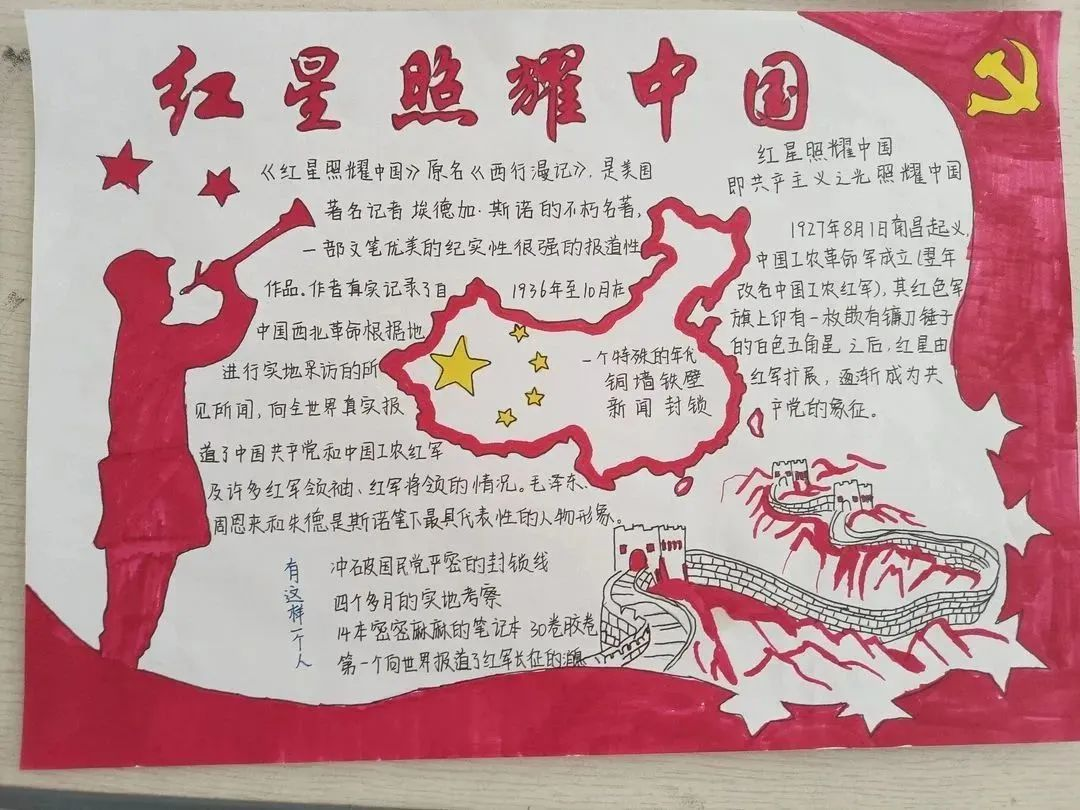 红星照耀中国
《红星照耀中国》原名《西行漫记》,是美国
著名记者 埃德加·斯诺的不朽名著,
一部文笔优美的纪实性很强的报道性
作品。作者真实记录了自 1936年至10月在
中国西北革命根据地
进行实地采访的所
见所闻,向全世界真实报
道了中国共产党和中国工农红军
及许多红军领袖、红军将领的情况。毛泽东、
周恩来和朱德是斯诺笔下最具代表性的人物形象。
一个特殊的年代
铜墙铁壁
新闻 封锁
红星照耀中国
即共产主义之光照耀中国
1927年8月1日南昌起义,
中国工农革命军成立(翌年
改名中国工农红军),其红色军
旗上印有一枚嵌有镰刀锤子
的白色五角星 之后,红星由
红军扩展,逐渐成为共
产党的象征。
有这样一个人
冲破国民党严密的封锁线
四个多月的实地考察
14本密密麻麻的笔记本 30卷胶卷
第一个向世界报道了红军长征的消息